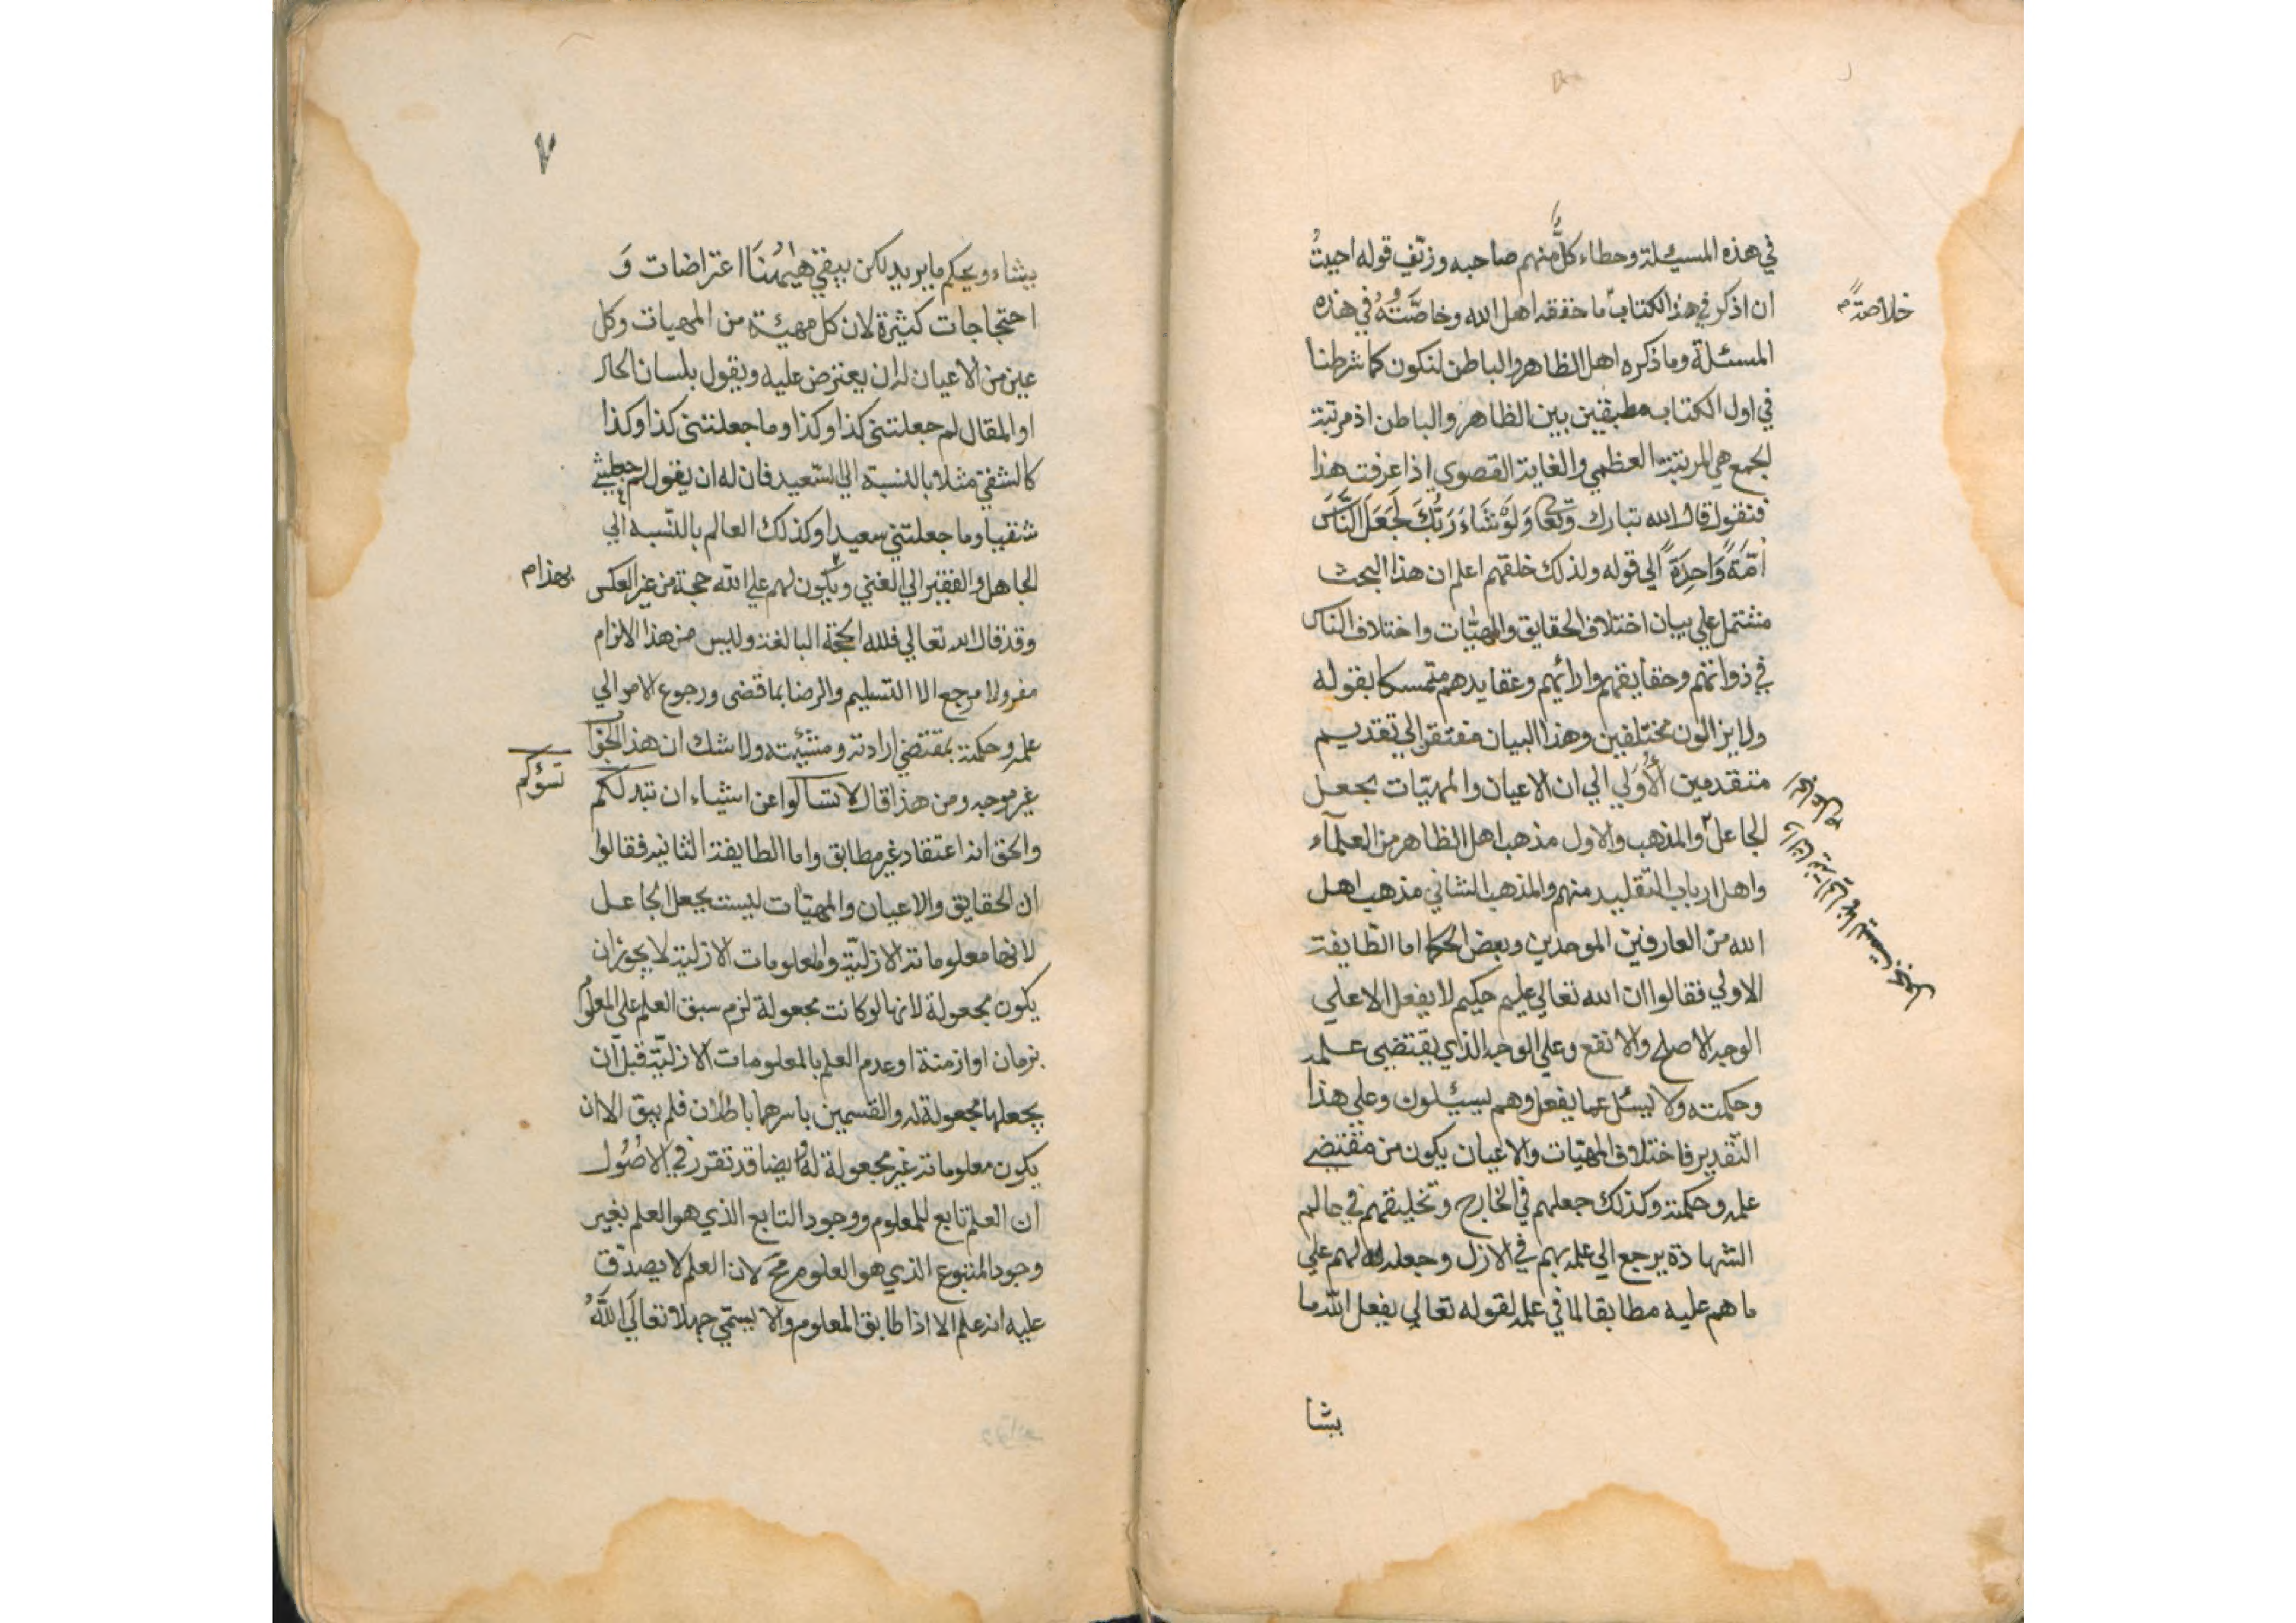 في هذه المسيئلة وخطاء كلٌّ منهم صاحبه وزيّف قوله احببتُ
خلاصةً م
ان اذكر في هذا الكتاب ما حققه اهل الله وخاصّتُهُ في هذه
المسئلة وما ذكره اهل الظاهر والباطن لنكون كما شرطنا
في اول الكتاب مطبقين بين الظاهر والباطن اذ مرتبة
الجمع هي المرتبة العظمي والغاية القصوي اذا عرفت هذا
فنقول قال الله تبارك وتعا وَلَوْ شَاءَ رَبُّكَ لَجَعَلَ النَّاسَ
اُمَّةً وَاحِدَةً الي قوله ولذلك خلقهم اعلم ان هذا البحث
مشتمل علي بيان اختلاف الحقايق والمهيّات واختلاف الناس
في ذواتهم وحقايقهم وارائهم وعقايدهم متمسكا بقوله
ولا يزالون مختلفين وهذا البيان مفتقر الي تقديم
متقدمين الأُولي الي ان الاعيان والمهيّات بجعل
الجاعل والمذهب والاول مذهب اهل الظاهر من العلمآء
واهل ارباب التقليد منهم والمذهب الثاني مذهب اهل
الله من العارفين الموحدين وبعض الحكما اما الطّايفة
الاولي فقالوا ان الله تعالي عليم حكيم لا يفعل الا علي
الوجه الاصلح والانفع وعلي الوجه الذي يقتضي علمه
وحكمته ولا يسئل عما يفعل وهم يسيئلون وعلي هذا
التّقدير فاختلاف المهيّات والاعيان يكون من مقتضي
علمه وحكمته وكذلك جعلهم في الخارج وتخليقهم في عالم
الشهادة يرجع الي علمه بهم في الازل وجعله لهم علي
ما هم عليه مطابقا لما في علمه لقوله تعالي يفعل الله ما
يشا
٧
يشاء ويحكم ما يريد لكن يبقي هٰيهُنَا اعتراضات وَ
احتجاجات كثيرة لان كل مهيئة من المهيات وكل
عين من الاعيان له ان يعترض عليه ويقول بلسان الحال
او المقال لم جعلتني كذا وكذا وما جعلتني كذا وكذا
كالشقي مثلا بالنسبة الي السّعيد فان له ان يقول لم جعلتني
شقيا وما جعلتني سعيدا وكذلك العالم بالنّسبه الي
الجاهل والفقير الي الغني ويكون لهم علي الله حجة من غير العكس
بهذا م
وقد قال الله تعالي فلله الحجة البالغة وليس من هذا الالزام
مفر ولا مرجع الا التسليم والرضا بما قضي ورجوع الامر الي
علمه وحكمته بمقتضي ارادته ومشيئته ولا شك ان هذا الجواب
غير موجه ومن هذا قال لا تسالوا عن اشياء ان تبد لكم
تسؤكم
والحق انه اعتقاد غير مطابق واما الطايفة الثانيه فقالوا
ان الحقايق والاعيان والمهيّات ليست بجعل الجاعل
لانها معلوماته الازليّة والمعلومات الازلية لا يجوز ان
يكون مجعولة لانها لو كانت مجعولة لزم سبق العلم علي المعلوم
بزمان او ازمنة او عدم العلم بالمعلومات الازليّة قبل ان
يجعلها مجعولة له والقسمين باسرهما باطلان فلم يبق الا ان
يكون معلوماته غير مجعولة له وايضا قد تقرر في الاصُول
ان العلم تابع للمعلوم ووجود التابع الذي هو العلم بغير
وجود المتبوع الذي هو العلوم مح لان العلم لا يصدّق
عليه انه علم الا اذا طابق المعلوم والا يسمّي جهلا تعالَي اللّهُ